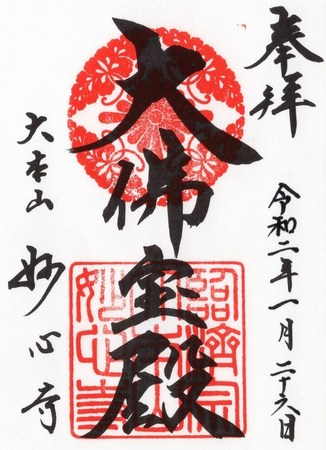 奉拝
令和二年一月二十六日
大佛宝殿
大本山 妙心寺